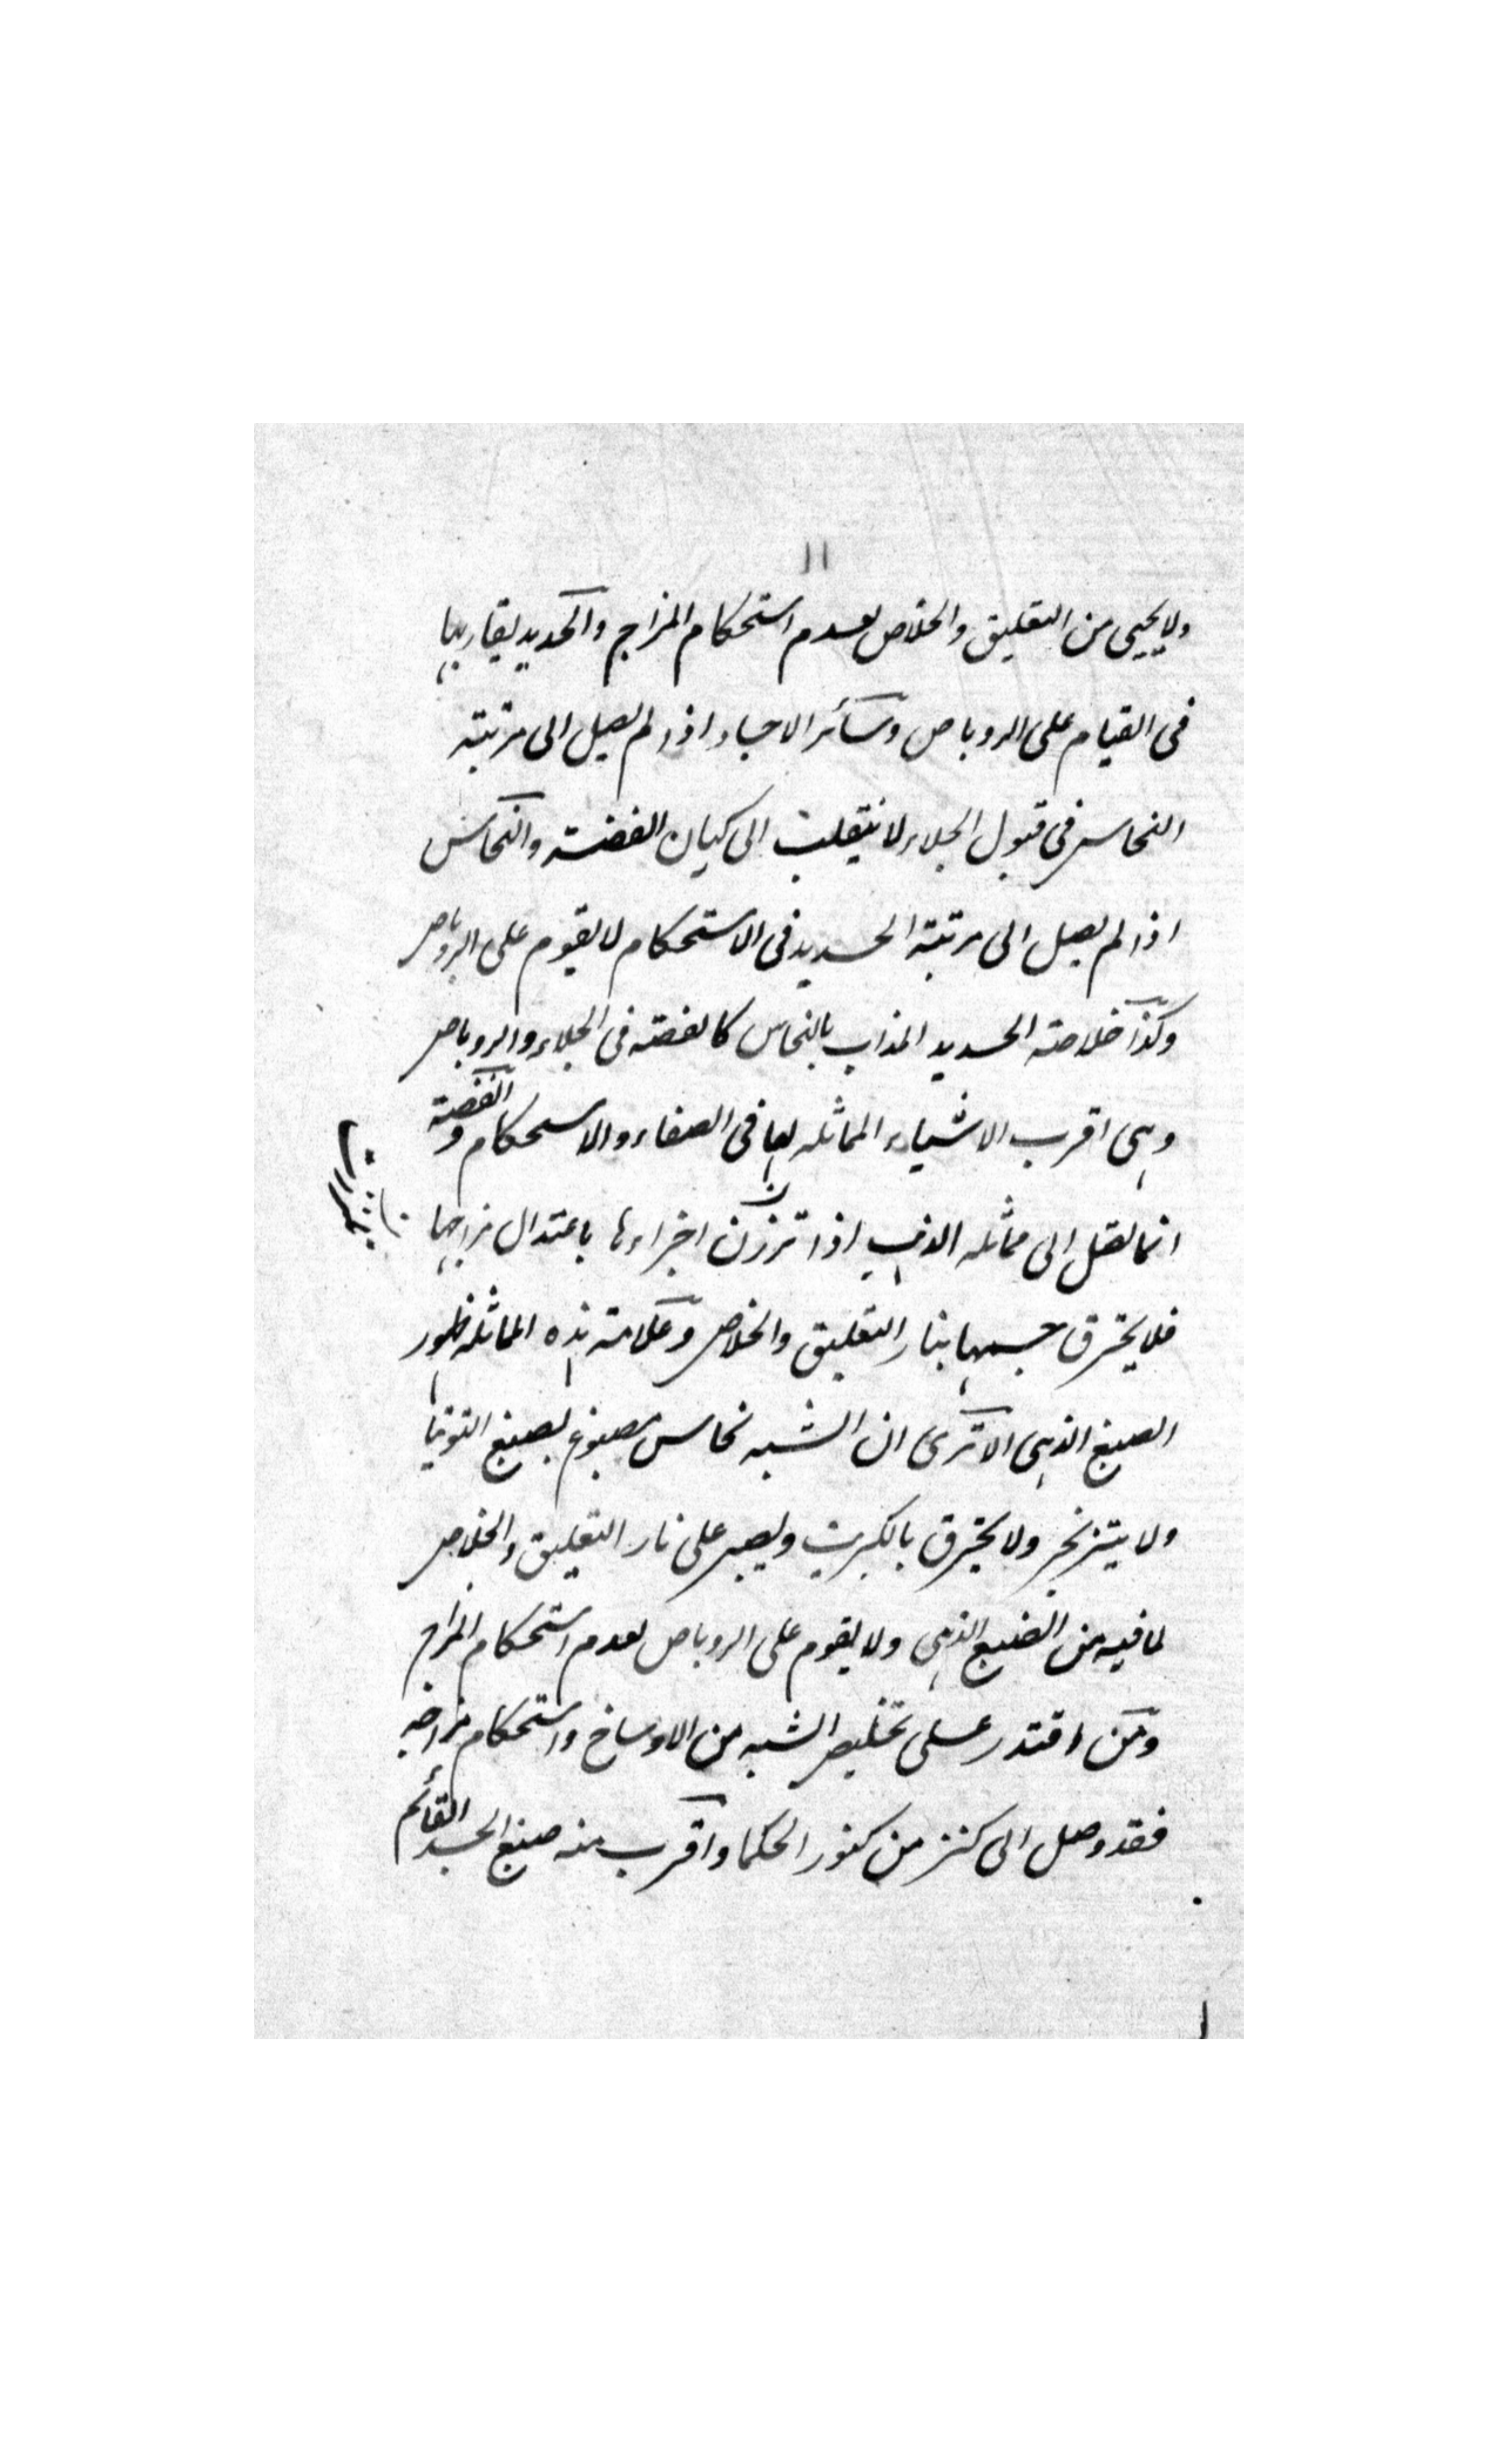 ۱۱
ولا يحيى من التعليق والخلاص لعدم استحكام المزاج والحديد يقاربها
فى القيام على الروباص وسائر الاجساد اذا لم يصل الى مرتبته
النحاس فى قبول الجلاء لا ينقلب الى كيان الفضة والنحاس
اذا لم يصل الى مرتبة الحديد فى الاستحكام لا يقوم على الروباص
وكذا خلاصته الحديد المذاب بالنحاس كالفضة فى الجلاء والروباص
وهى اقرب الاشياء المماثله لها فى الصفاء والاستحكام والفضة
انما تصل الى مماثله الذهب اذا ترزن اجزاءها باعتدال مزاجها
فلا يحترق جسمها بنار التعليق والخلاص وعلامته هذه المماثله ظهور
الصبغ الذهبى الا ترى ان الشبه نحاس مصبوغ بصبغ التوتيا
ولا يتزنجر ولا يحترق بالكبريت ويصبر على نار التعليق والخلاص
لما فيه من الصبغ الذهبى ولا يقوم على الروباص لعدم استحكام المزاج
ومن اقتدر على تخليص الشبه من الاوساخ واستحكام مزاجه
فقد وصل الى كنز من كنوز الحكما واقرب منه صبغ الجسد القائم